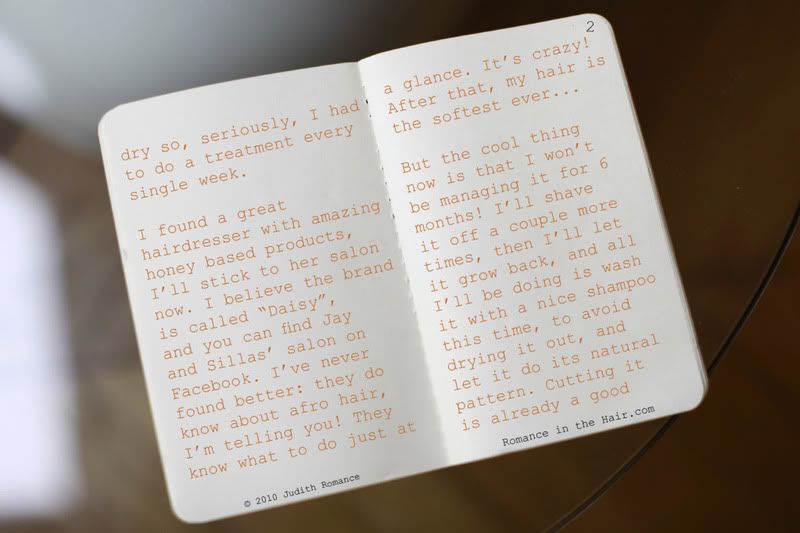 dry so, seriously, I had
to do a treatment every
single week.
I found a great
hairdresser with amazing
honey based products,
I'll stick to her salon
now. I believe the brand
is called “Daisy”,
and you can find Jay
and Sillas’ salon on
Facebook. I've never
found better: they do
know about afro hair,
I'm telling you! They
know what to do just at
© 2010 Judith Romance
2
a glance. It's crazy!
After that, my hair is
the softest ever...
But the cool thing
now is that I won't
be managing it for 6
months! I'll shave
it off a couple more
times, then I'll let
it grow back, and all
I'll be doing is wash
it with a nice shampoo
this time, to avoid
drying it out, and
let it do its natural
pattern. Cutting it
is already a good
Romance in the Hair.com